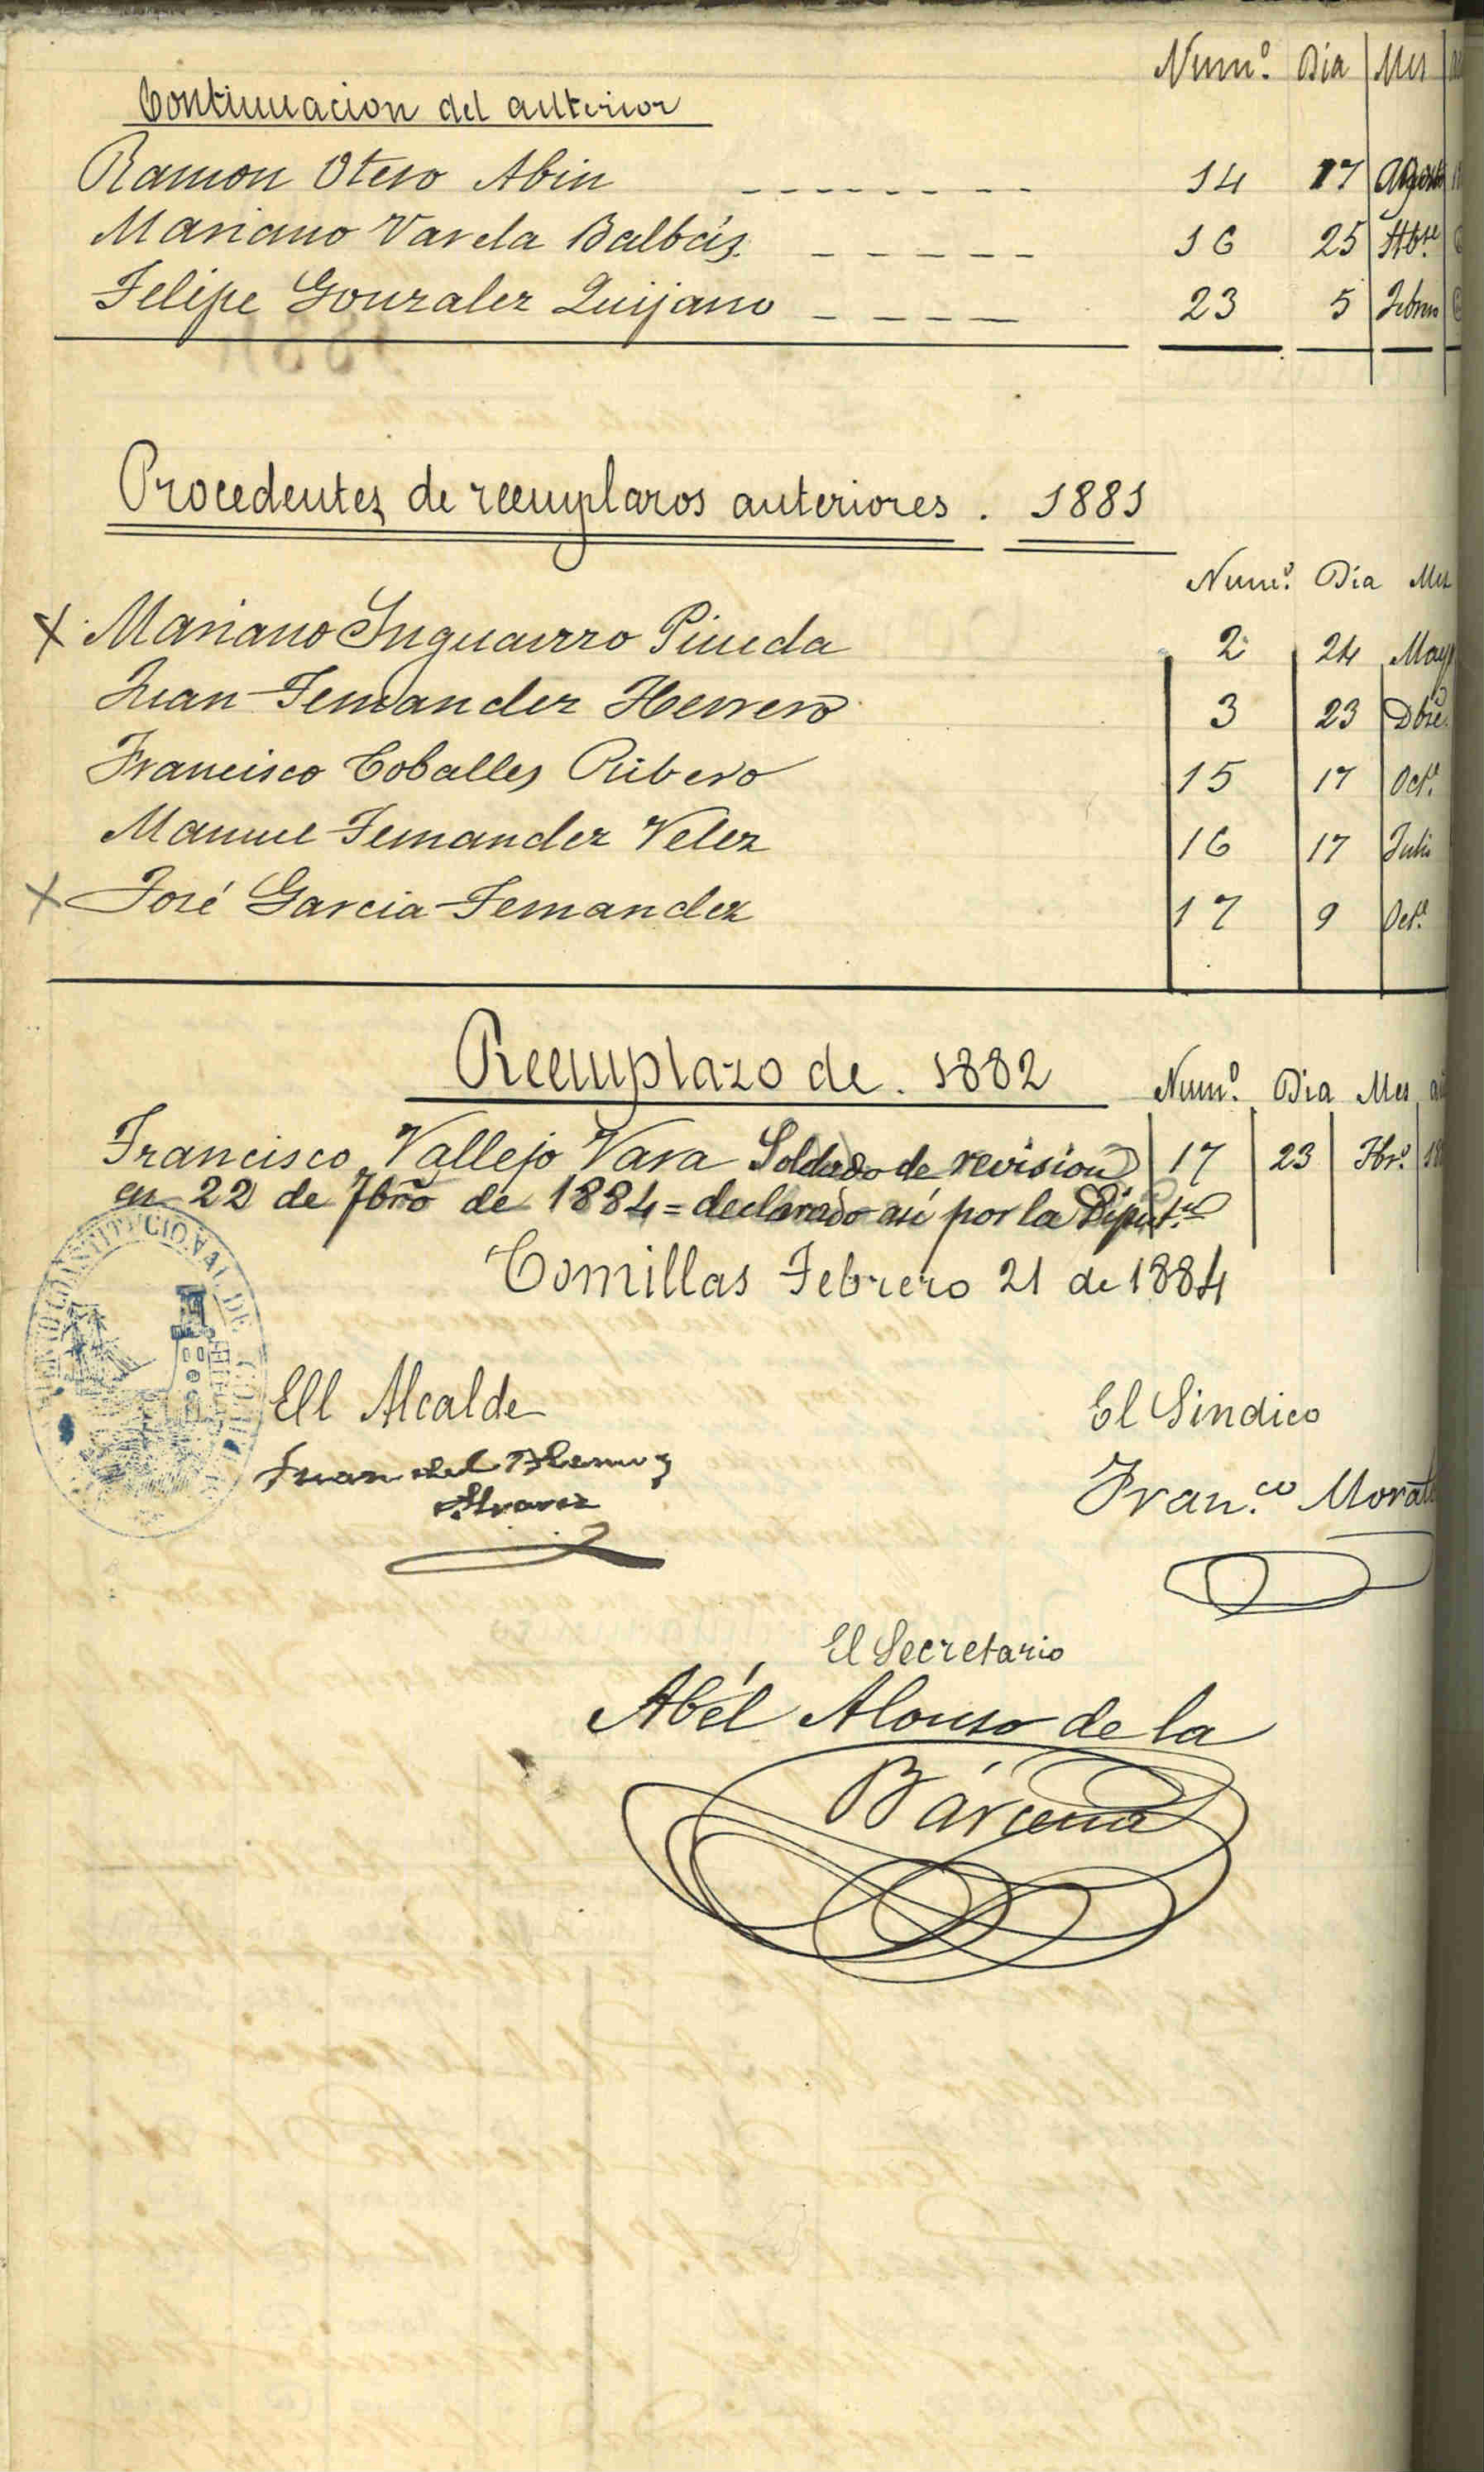 Num.º Dia Mes
Continuacion del anterior
Ramon Otero Abin - - - - - - - - 14 17 Agosto
Mariano Varela Balbás - - - - - 16 25
Felipe Gonzalez Quijano - - - - 23 5 Febro
Procedentes de reemplazos anteriores. 1881
Num.º Dia Mes
X Mariano Inguanzo Pineda 2 24 Mayo
Juan Fernandez Herrero 3 23 Dbre.
Francisco Coballes Ribero 15 17 Oct.e
Manuel Fernandez Velez 16 17 Julio
X José Garcia Fernandez 17 9 Oct.e
Reemplazo de. 1882 Num.º Dia Mes
Francisco Vallejo Vara Soldado de revision 17 23
en 22 de de 1884 = declarado asi por la Diput.on
Comillas Febrero 21 de 1884
CONSTITUCIONAL DE
El Alcalde
El Sindico
Juan del
Alvarez
Fran.co
El Secretario
Abél Alonso de la
Bárcena